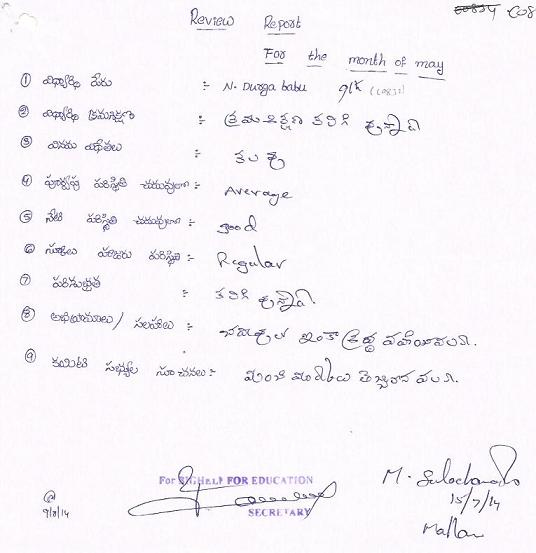 Review Report C08
For the month of may
① విద్యార్థి పేరు :- N. Durga babu
② విద్యార్థి క్రమశిక్షణ :- క్రమశిక్షణ కలిగి ఉన్నాది
③ వినయ విధేయతలు :- కలవు
④ పూర్వపు పరిస్థితి చదువులో :- Average
⑤ నేటి పరిస్థితి చదువులో :- good
⑥ స్కూలు హాజరు పరిస్థితి :- Regular
⑦ పరిశుభ్రత :- కలిగి ఉన్నాది.
⑧ అభిప్రాయాలు / సలహాలు :- ఇంకా శ్రద్ధ వహించవలెను.
⑨ కమిటీ సభ్యుల సూచనలు :- మంచి మార్కులు తెచ్చుకోవలెను.
For BIGHELP FOR EDUCATION
SECRETARY
9/8/14
M. Sulochana
15/7/14